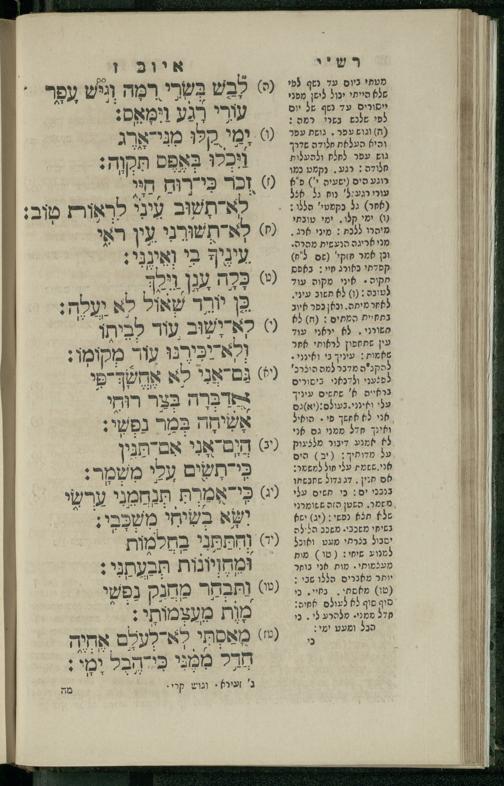 רש״י
איוב ז
(ה) לָ֘בַ֤שׁ בְּשָׂרִ֣י רִ֭מָּה וְגִ֣ישׁ עָפָ֑ר
עוֹרִ֥י רָ֝גַ֗ע וַיִּמָּאֵֽס׃
(ו) יָמַ֣י קַ֭לּוּ מִנִּי־אָ֑רֶג
וַ֝יִּכְל֗וּ בְּאֶ֣פֶס תִּקְוָֽה׃
(ז) זְ֭כֹר כִּי־ר֣וּחַ חַיָּ֑י
לֹא־תָשׁ֥וּב עֵ֝ינִ֗י לִרְא֥וֹת טֽוֹב׃
(ח) לֹֽא־תְ֭שׁוּרֵנִי עֵ֣ין רֹ֑אִי
עֵינֶ֖יךָ בִּ֣י וְאֵינֶֽנִּי׃
(ט) כָּלָ֣ה עָ֭נָן וַיֵּלַ֑ךְ
כֵּ֥ן יוֹרֵ֥ד שְׁ֝א֗וֹל לֹ֣א יַעֲלֶֽה׃
(י) לֹא־יָשׁ֣וּב ע֣וֹד לְבֵית֑וֹ
וְלֹא־יַכִּירֶ֖נּוּ ע֣וֹד מְקוֹמֽוֹ׃
(יא) גַּם־אֲנִי֮ לֹ֤א אֶחֱשָׂ֫ךְ־פִּ֥י
אֲֽ֭דַבְּרָה בְּצַ֣ר רוּחִ֑י
אָ֝שִׂ֗יחָה בְּמַ֣ר נַפְשִֽׁי׃
(יב) הֲֽיָם־אָ֭נִי אִם־תַּנִּ֑ין
כִּֽי־תָשִׂ֖ים עָלַ֣י מִשְׁמָֽר׃
(יג) כִּֽי־אָ֭מַרְתִּי תְּנַחֲמֵ֣נִי עַרְשִׂ֑י
יִשָּׂ֥א בְ֝שִׂיחִ֗י מִשְׁכָּבִֽי׃
(יד) וְחִתַּתַּ֥נִי בַחֲלֹמ֑וֹת
וּֽמֵחֶזְיֹנ֥וֹת תְּבַעֲתַֽנִּי׃
(טו) וַתִּבְחַ֣ר מַחֲנָ֣ק נַפְשִׁ֑י
מָ֝֗וֶת מֵֽעַצְמוֹתָֽי׃
(טז) מָ֭אַסְתִּי לֹא־לְעֹלָ֣ם אֶֽחְיֶ֑ה
חֲדַ֥ל מִ֝מֶּ֗נִּי כִּי־הֶ֥בֶל יָמָֽי׃
ג׳ זעירא · וגוש קרי ·
מה
מטתי ביום עד נשף לפי
שלא הייתי יכול לישן מפני
ייסורים עד נשף של יום
לפי שלבש בשרי רמה :
(ה) וגוש עפר . גושת עפר
והיא העלאת חלודה שדרך
גוש עפר לחלח ולהעלות
חלודה : רגע . נקמט כמו
רוגע הים (ישעיה
(ו) ימי קלו . ימי טובתי
מיהרו ללכת : מיני ארג .
מני אריגה הנעשית מהרה .
וכן אמר חזקי׳ (שם ל״ח)
קפדתי כאורג חיי : באפס
תקוה . איני מקוה עוד
לטובה : (ז) לא תשוב עיני .
לאחר מיתה . וכאן כפר איוב
בתחיית המתים : (ח) לא
תשורני . לא יראני עוד
עין שתחפוץ לראותי אחר
שאמות : עיניך בי ואינני .
להקב״ה מדבר למה הוזכר׳
לפגעני ולדכאני ביסורים
בראייה א׳ שתשים עיניך
עלי ואינני בעולם : (יא) גם
אני לא אחשך פי . הואיל
ואינך חדל ממני גם אני
לא אמנע דיבור מלצעוק
על מדותיך : (יב) הים
אני . ששמת עלי חול למשמר :
אם תנין . דג גדול שחבשתו
בנבכי ים : כי תשים עלי
משמר . השטן הזה ששומרני
שלא תצא נפשי : (יג) ישא
בשיחי משכבי . משכב הלילה
יסבול בצרתי מעט ואוכל
למנוע שיחי : (טו) מות
מעצמותי . מות אני בוחר
יותר מאברים הללו שבי :
(טז) מאסתי . בחיי . כי
סוף סוף לא לעולם אחיה :
חדל ממני . מלהרע לי . כי
הבל ומעט ימי :
כי